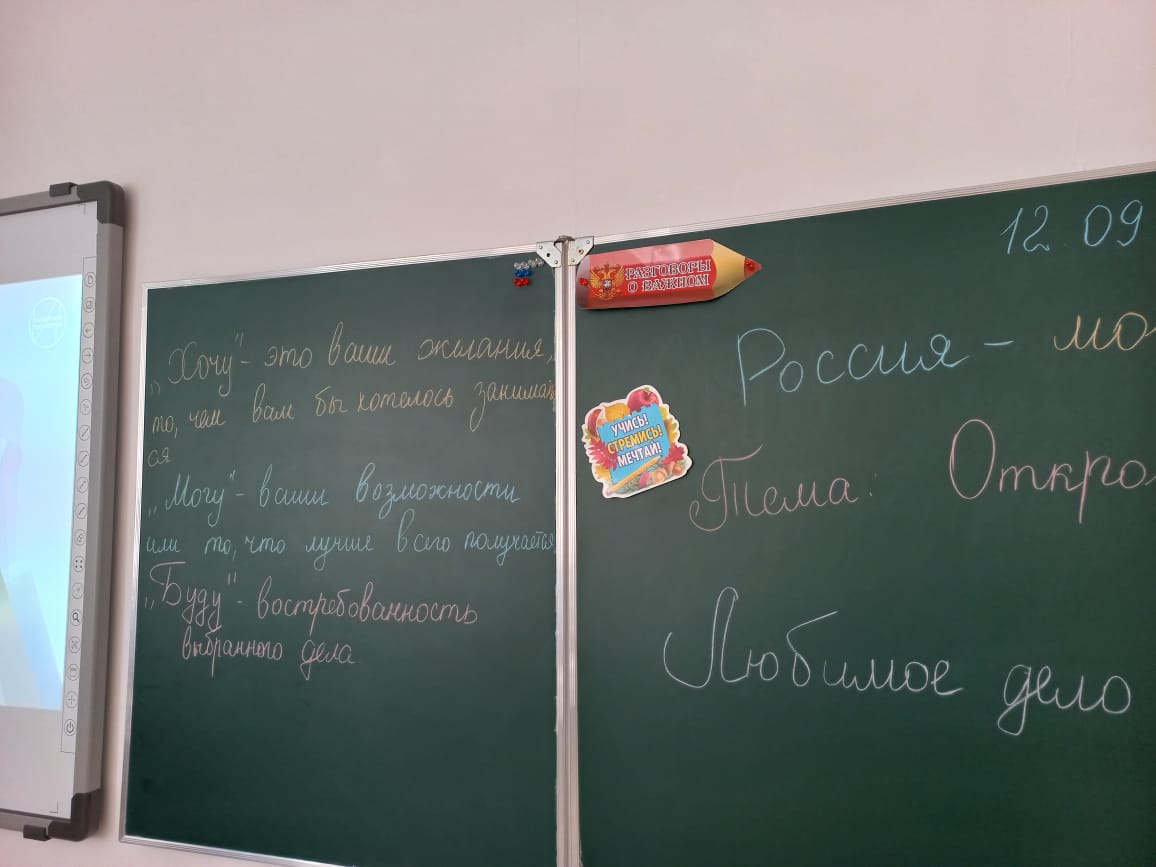 „Хочу"- это ваши желания,
то, чем вам бы хотелось занимать
ся
„Могу"- ваши возможности
или то, что лучше всего получается
„Буду"- востребованность
выбранного дела
РАЗГОВОРЫ
О ВАЖНОМ
12.09
Россия - мо
УЧИСЬ!
СТРЕМИСЬ!
МЕЧТАЙ!
Тема: Откро
Любимое дело